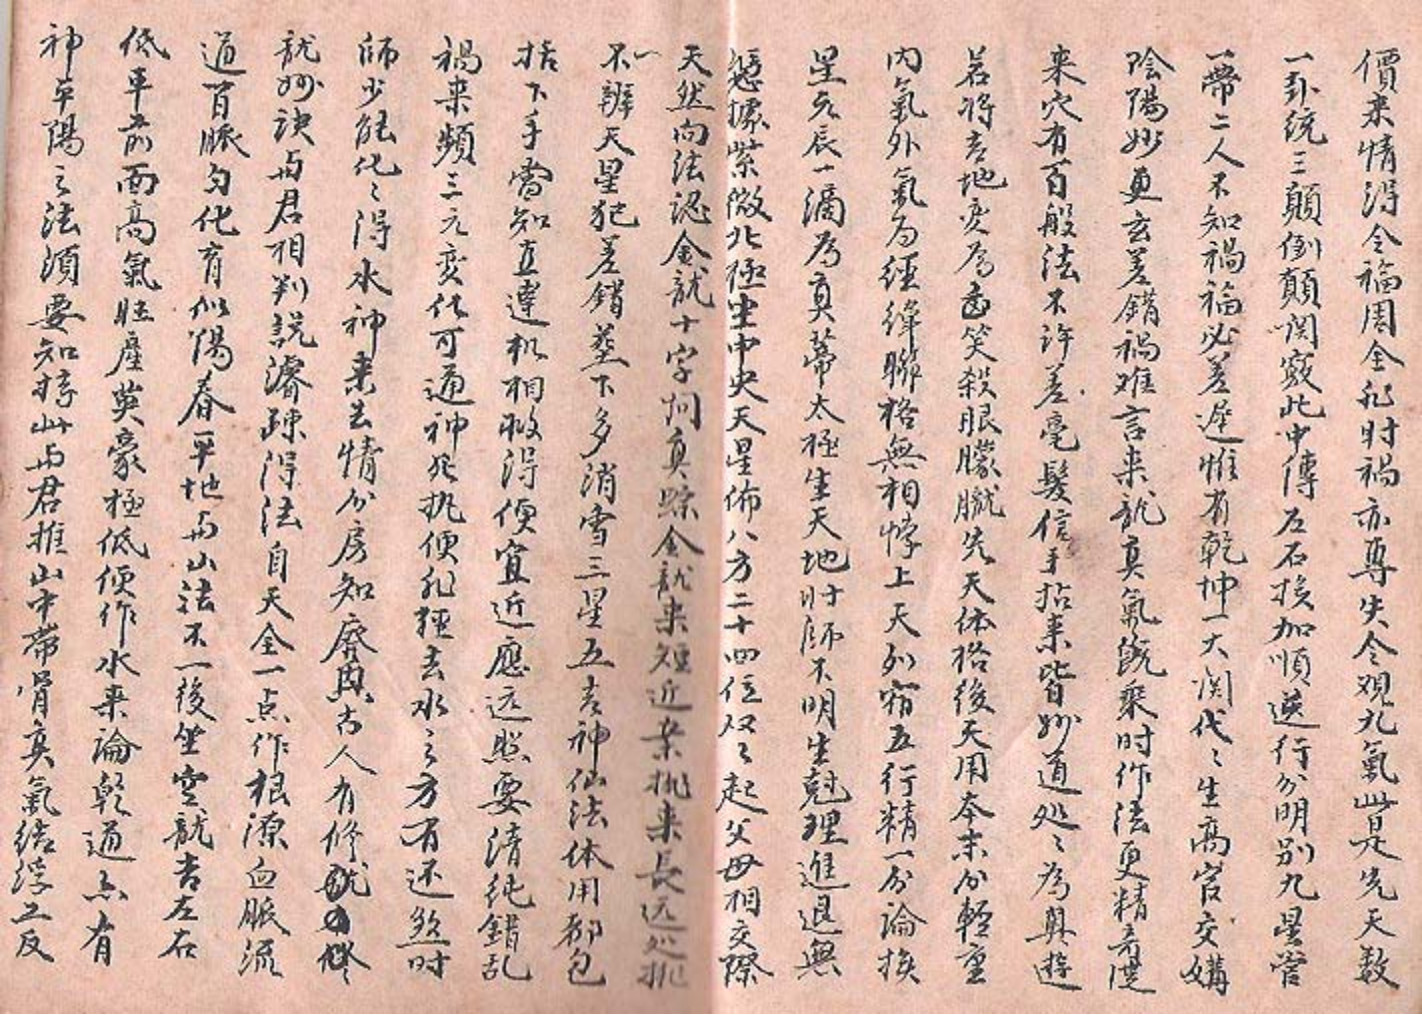 價来情得令福周全犯时禍亦尊失令观九氣此是先天数
一卦统三顛倒顛関竅此中傳左右挨加順逆行分明别九星管
一帶二人不知禍福必差遲惟有乾坤一大関代〻生高官交媾
陰陽妙更玄差錯禍难言来龍真氣既乘时作法更精
来穴有百般法不许差毫髮信手拈来皆妙道処〻為真遊
若将吉地变為凶笑殺眼朦朧先天体格後天用本末分輕重
内氣外氣为經緯聯格無相悖上天列宿五行精一分論挨
星元辰一滴為真蒂太極生天地时师不明生尅理進退無
憑據紫微北極坐中央天星佈八方二十四位双〻起父母相交際
天然向法认金龍十字问真踪金龍来短近来挑来長远処挑
不辨天星犯差錯塟下多消雪三星五吉神仙法体用都包
括下手需知直達机相收得便宜近應远照要清纯錯乱
禍来頻三元变化可通神死執便非輕去水之方有还煞时
師少能化〻得水神来去情分房知廢興古人有修
龍妙诀与君相判説濬疎得法自天全一点作根源血脈流
通百脈匀化育似陽春平地与山法不一後坐空龍吉左右
低平前面高氣旺產英豪極低便作水来論乾道点有
神平陽之法須要知持此与君推山中帶骨真氣结浮土反